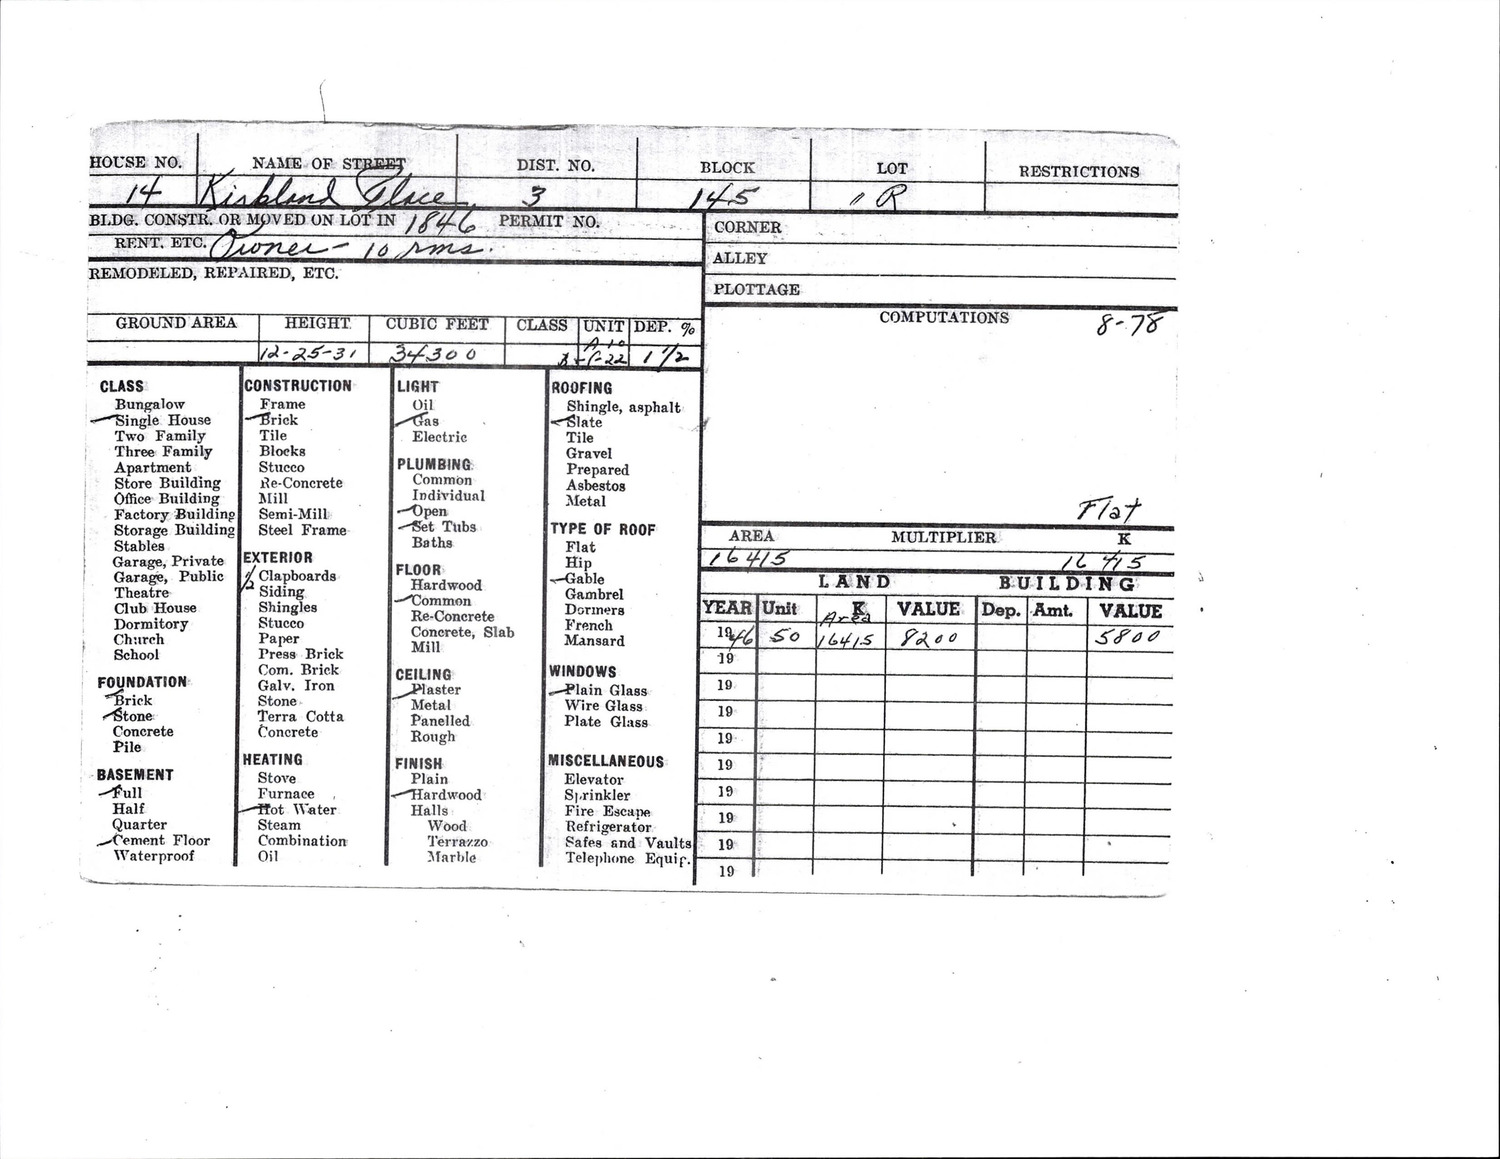 HOUSE NO. NAME OF STREET DIST. NO. BLOCK LOT RESTRICTIONS
14 Kirkland Place 3 145 " R
BLDG. CONSTR. OR MOVED ON LOT IN 1846 PERMIT NO.
RENT, ETC. Owner - 10 rms.
REMODELED, REPAIRED, ETC.
CORNER
ALLEY
PLOTTAGE
GROUND AREA HEIGHT CUBIC FEET CLASS UNIT DEP. %
12-25-31 34300 A-10 1 1/2
COMPUTATIONS 8-78
Flat
CLASS
Bungalow
Single House
Two Family
Three Family
Apartment
Store Building
Office Building
Factory Building
Storage Building
Stables
Garage, Private
Garage, Public
Theatre
Club House
Dormitory
Church
School
FOUNDATION
Brick
Stone
Concrete
Pile
BASEMENT
Full
Half
Quarter
Cement Floor
Waterproof
CONSTRUCTION
Frame
Brick
Tile
Blocks
Stucco
Re-Concrete
Mill
Semi-Mill
Steel Frame
EXTERIOR
Clapboards
Siding
Shingles
Stucco
Paper
Press Brick
Com. Brick
Galv. Iron
Stone
Terra Cotta
Concrete
HEATING
Stove
Furnace
Hot Water
Steam
Combination
Oil
LIGHT
Oil
Gas
Electric
PLUMBING
Common
Individual
Open
Set Tubs
Baths
FLOOR
Hardwood
Common
Re-Concrete
Concrete, Slab
Mill
CEILING
Plaster
Metal
Panelled
Rough
FINISH
Plain
Hardwood
Halls
Wood
Terrazzo
Marble
ROOFING
Shingle, asphalt
Slate
Tile
Gravel
Prepared
Asbestos
Metal
TYPE OF ROOF
Flat
Hip
Gable
Gambrel
Dormers
French
Mansard
WINDOWS
Plain Glass
Wire Glass
Plate Glass
MISCELLANEOUS
Elevator
Sprinkler
Fire Escape
Refrigerator
Safes and Vaults
Telephone Equip.
AREA MULTIPLIER K
16415 16415
LAND BUILDING
YEAR Unit K Area VALUE Dep. Amt. VALUE
1946 50 16415 8200 5800
19
19
19
19
19
19
19
19
19